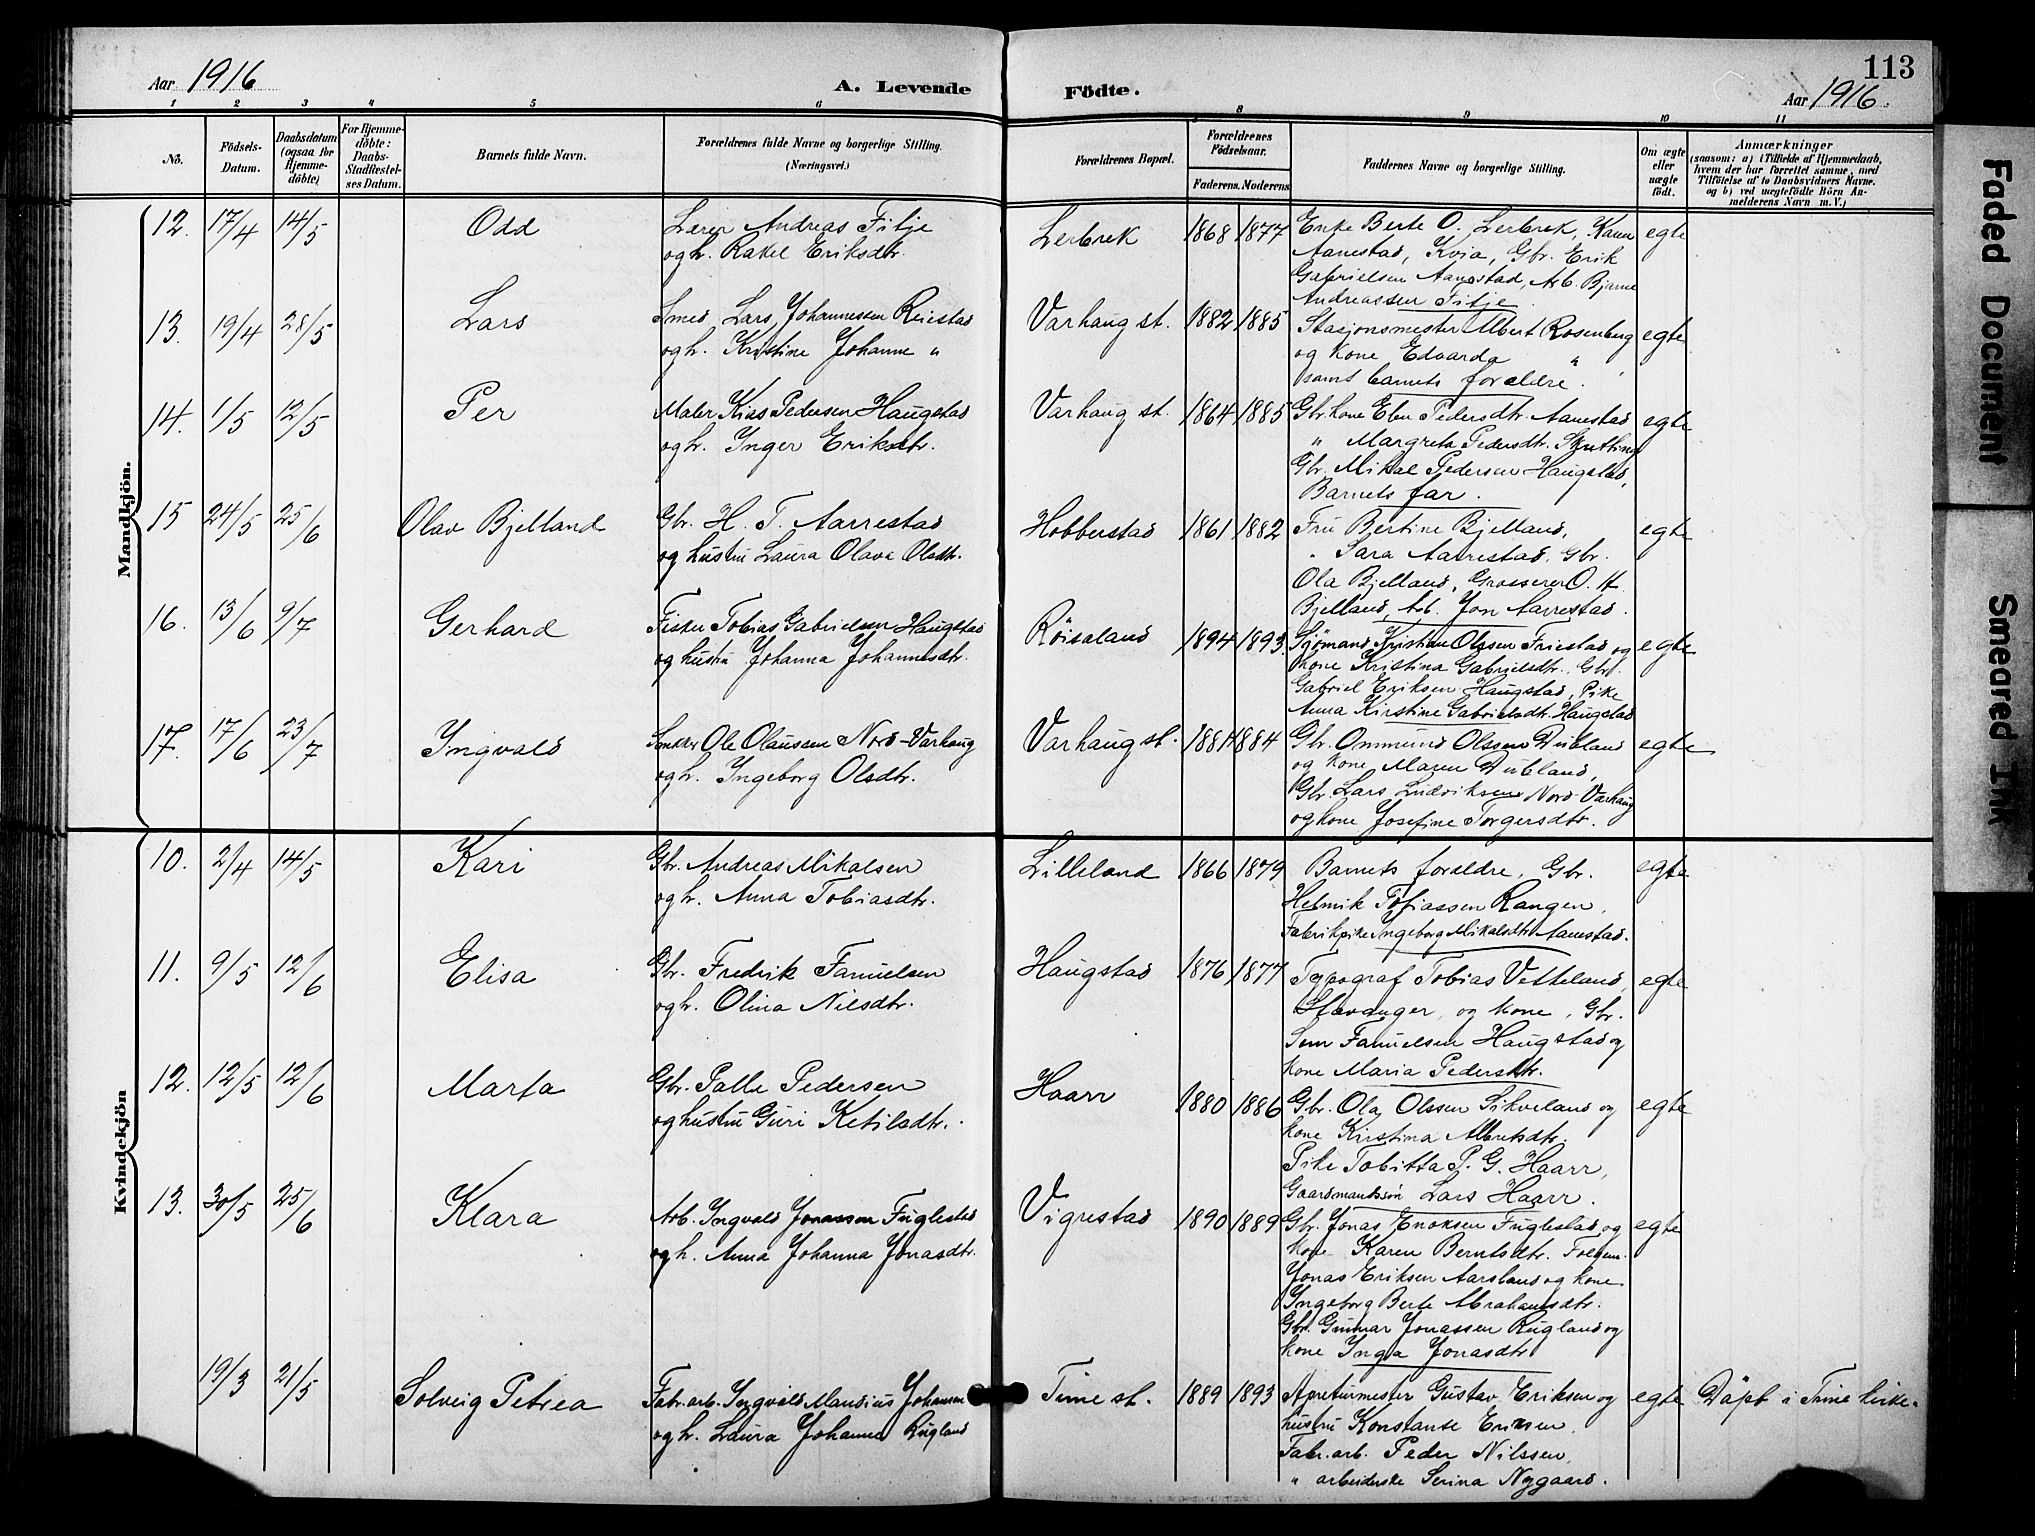 113
Aar 1916 A. Levende Födte. Aar 1916.
1 2 3 4 5 6 8 9 10 11
No.
Födsels-Datum.
Daabsdatum (ogsaa for Hjemme-döbte)
For Hjemme-döbte: Daabs-Stadfæstel-ses Datum.
Barnets fulde Navn.
Forældrenes fulde Navne og borgerlige Stilling.
(Næringsvei.)
Forældrenes Bopæl.
Forældrenes Födselsaar.
Faderens. Moderens
Faddernes Navne og borgerlige Stilling.
Om ægte eller uægte födt.
Anmærkninger
(saasom: a) i Tilfælde af Hjemmedaab,
hvem der har forrettet samme, med
Tilföielse af to Daabsvidners Navne.
og b) ved uægtefödte Börn An-
melderens Navn m. V.)
Mandkjön.
12. 17/4 14/5 Odd
Lærer Andreas Fitje
og h. Rakel Eriksdtr.
Lerbrek 1868 1877
Enke Berte O. Lerbrek, Karen
Aanestad, Kvia, Gbr. Erik
Gabrielsen Aanestad, Arb. Bjarne
Andreassen Fitje.
egte
13. 19/4 28/5 Lars
Smed Lars Johannessen Reiestad
og h. Kristine Johanne "
Varhaug st. 1882 1885
Stasjonsmester Albert Rosenberg
og kone Edvarda "
samt barnets forældre.
egte
14. 1/5 12/5 Per
Maler Kias Pedersen Haugstad
og h. Inger Eriksdtr.
Varhaug st. 1864 1885
Gbr. kone Elen Pedersdtr. Aanestad
" Margrete Pedersdtr.
Gbr. Mikal Pedersen Haugstad,
Barnets far.
egte
15 24/5 25/6 Olav Bjelland
Gbr. H. T. Aarrestad
og hustru Laura Olava Olsdtr.
Hobberstad 1861 1882
Fru Bertine Bjelland,
" Sara Aarrestad, Gbr.
Ola Bjelland, Grosserer O. H.
Bjelland, Arb. Jon Aarrestad.
egte
16. 13/6 9/7 Gerhard
Fisker Tobias Gabrielsen Haugstad
og hustru Johanna Johannesdtr.
Röisaland 1894 1893.
Sjömand Kristian Olssen Friestad og
kone Kristina Gabrielsdtr. Gbr.
Gabriel Eriksen Haugstad, Pike
Anna Kirstine Gabrielsdtr. Haugstad
egte
17. 17/6 23/7 Ingvald
Snekker Ole Olaussen Nord-Varhaug
og h. Ingeborg Olsdtr.
Varhaug st. 1881 1884
Gbr. Ommund Olssen Dubland
og kone Maren Dubland,
Gbr. Lars Ludviksen Nord-Varhaug
og kone Josefine Torgersdtr.
egte
Kvindekjön
10. 2/4 14/5 Kari
Gbr. Andreas Mikalsen
og h. Anna Tobiasdtr.
Lilleland 1866 1879
Barnets forældre, Gbr.
Helmik Tobiassen Rangen,
Fabrikpike Ingeborg Mikalsdtr. Aanestad.
egte
11. 9/5 12/6 Elisa
Gbr. Fredrik Famuelsen
og h. Olina Nilsdtr.
Haugstad 1876 1877
Typograf Tobias Vetteland,
Stavanger, og kone, Gbr.
Sem Famuelsen Haugstad og
kone Maria Pedersdtr.
egte
12. 12/5 12/6 Marta
Gbr. Palle Pedersen
og hustru Guri Ketilsdtr.
Haarr 1880 1886
Gbr. Ola Olssen Sikveland og
kone Kirstina Albretsdtr.
Pike Tobitta P. G. Haarr,
Gaardmandssön Lars Haarr.
egte
13. 30/5 25/6 Klara
Arb. Ingvald Jonassen Fuglestad
og h. Anna Johanna Jonasdtr.
Vigrestad 1890 1889
Gbr. Jonas Enoksen Fuglestad og
kone Karen Berntsdtr.
Jonas Eriksen Aarsland og kone
Ingeborg Berte Abrahamsdtr.
Gbr. Gunnar Jonassen Rugland og
kone Inga Jonasdtr.
egte
19/3 21/5 Solveig Petrea
Fabr.arb. Ingvald Mandius Johansen
og h. Laura Johanne Rugland
Time st. 1889 1893
Apreturmester Gustav Eriksen og
hustru Konstanse Eriksen,
Fabr.arb. Peder Nilssen,
" arbeiderske Serina Nygaard.
egte Döpt i Time kirke.
Faded Document
Smeared Ink